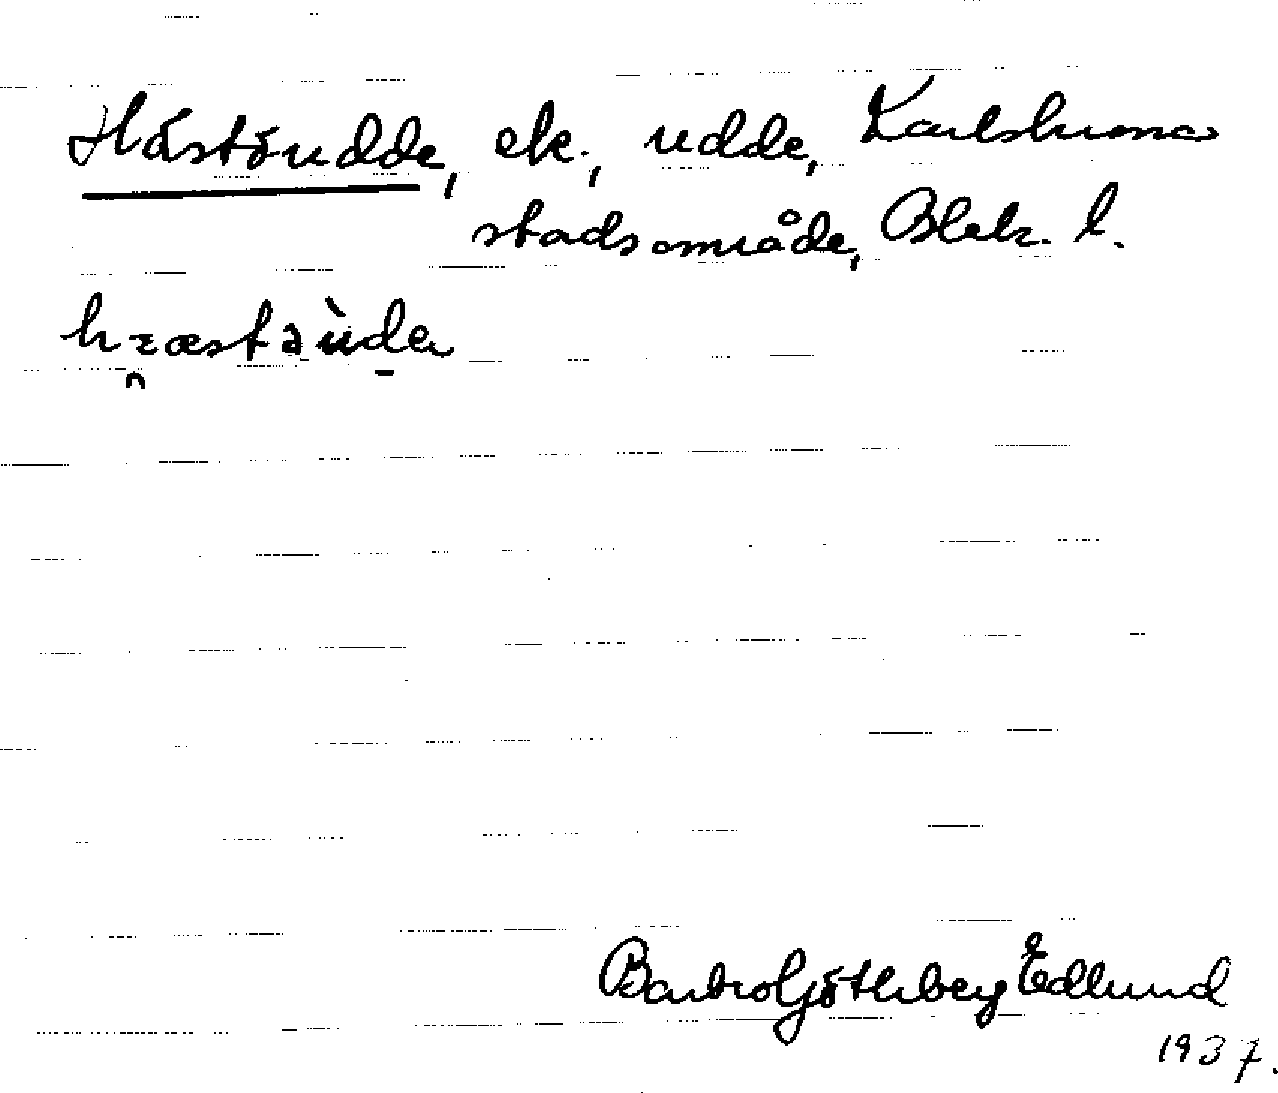 Hästöudde, ek., udde, Karlskrona
stadsområde, Blek. l.
Barbro Götherberg Edlund
1937.